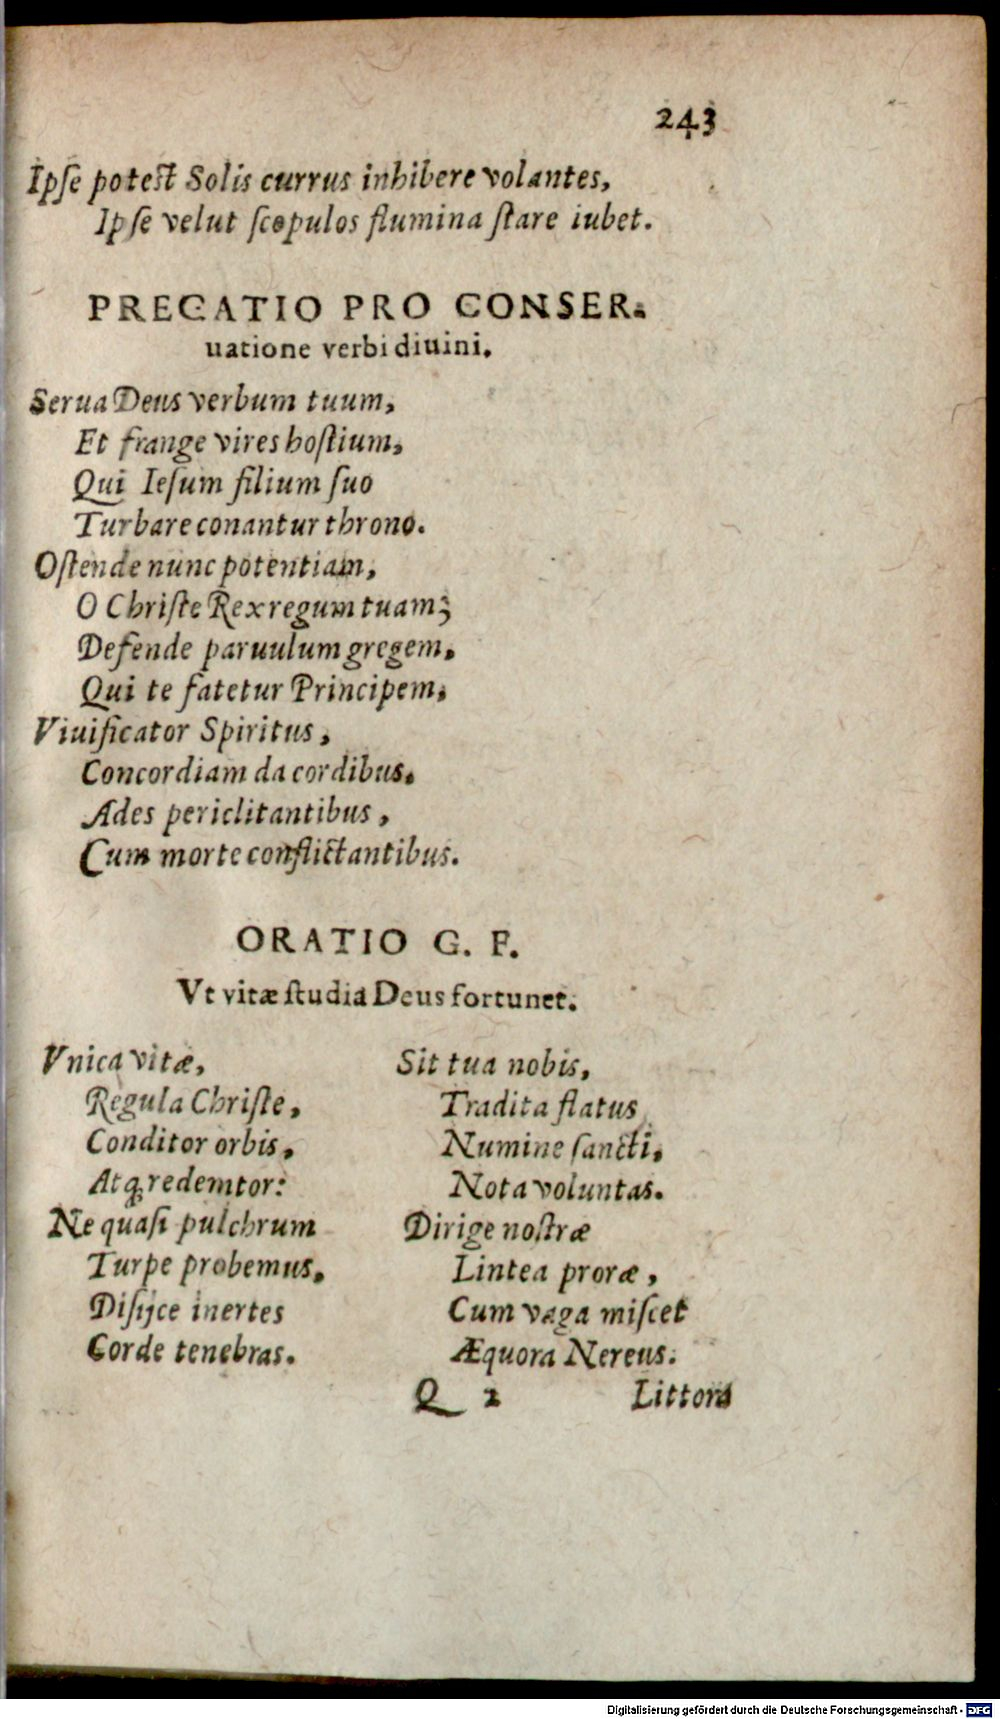 243
Ipſe poteſt Solis currus inhibere volantes,
Ipſe velut ſcopulos flumina ſtare iubet.
PRECATIO PRO CONSER-
uatione verbi diuini.
Serua Deus verbum tuum,
Et frange vires hoſtium,
Qui Ieſum filium ſuo
Turbare conantur throno.
Oſtende nunc potentiam,
O Chriſte Rex regum tuam;
Defende paruulum gregem,
Qui te fatetur Principem,
Viuificator Spiritus,
Concordiam da cordibus.
Ades periclitantibus,
Cum morte conflictantibus.
ORATIO G. F.
Vt vitæ ſtudia Deus fortunet.
Vnica vitæ,
Regula Chriſte,
Conditor orbis,
Atq́; redemtor:
Ne quaſi pulchrum
Turpe probemus,
Diſijce inertes
Corde tenebras.
Sit tua nobis,
Tradita flatus
Numine ſancti,
Nota voluntas.
Dirige noſtræ
Lintea proræ,
Cum vaga miſcet
Æquora Nereus.
Q 2 Littora
Digitalisierung gefördert durch die Deutsche Forschungsgemeinschaft - DFG